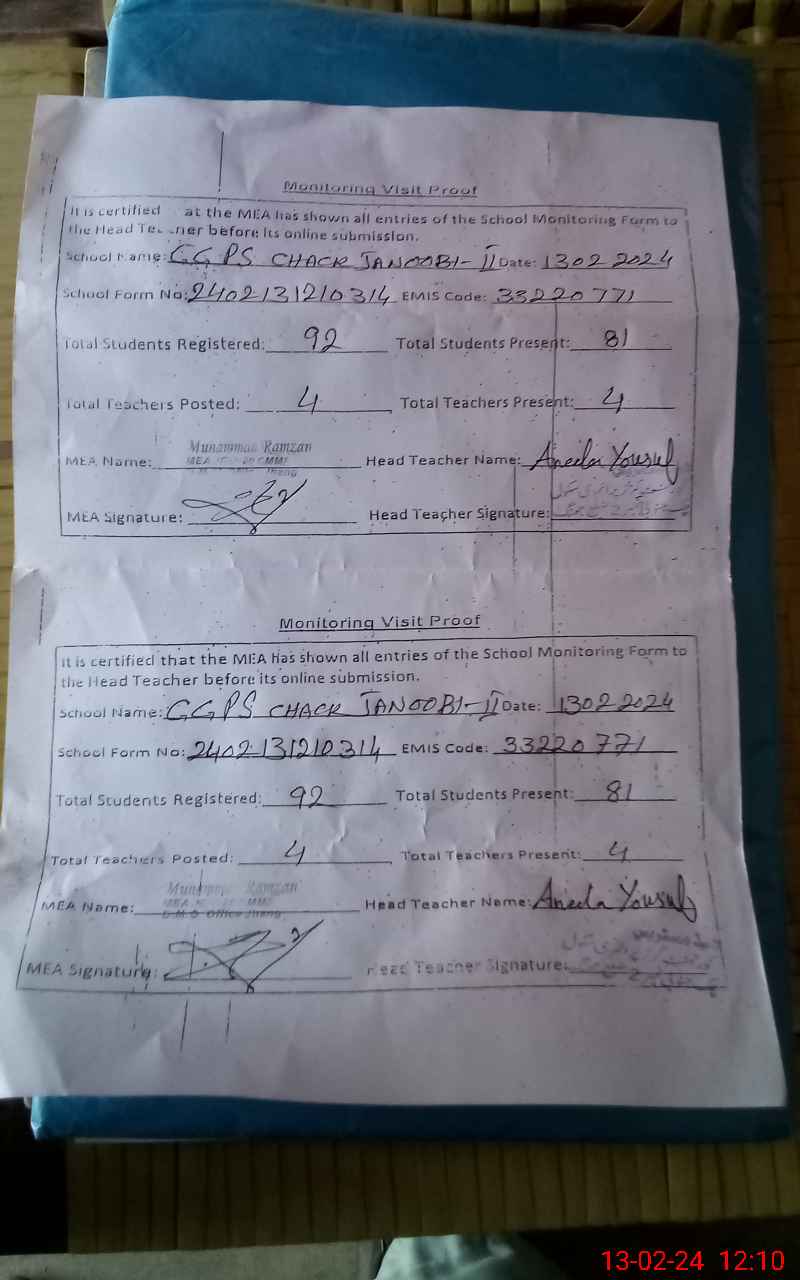 Monitoring Visit Proof
It is certified at the MEA has shown all entries of the School Monitoring Form to
the Head Teacher before its online submission.
School Name: GGPS CHACK JANOOBI-II Date: 13022024
School Form No: 2402131210314 EMIS Code: 33220771
Total Students Registered: 92 Total Students Present: 81
Total Teachers Posted: 4 Total Teachers Present: 4
Muhammad Ramzan
MEA Name: Head Teacher Name: Aneela Yousuf
Jhang
MEA Signature: Head Teacher Signature:
Monitoring Visit Proof
It is certified that the MEA has shown all entries of the School Monitoring Form to
the Head Teacher before its online submission.
School Name: GGPS CHACK JANOOBI-II Date: 13022024
School Form No: 2402131210314 EMIS Code: 33220771
Total Students Registered: 92 Total Students Present: 81
Total Teachers Posted: 4 Total Teachers Present: 4
Muhammad Ramzan
MEA Name: Head Teacher Name: Aneela Yousuf
D.M.O Office Jhang
MEA Signature: Head Teacher Signature:
13-02-24 12:10